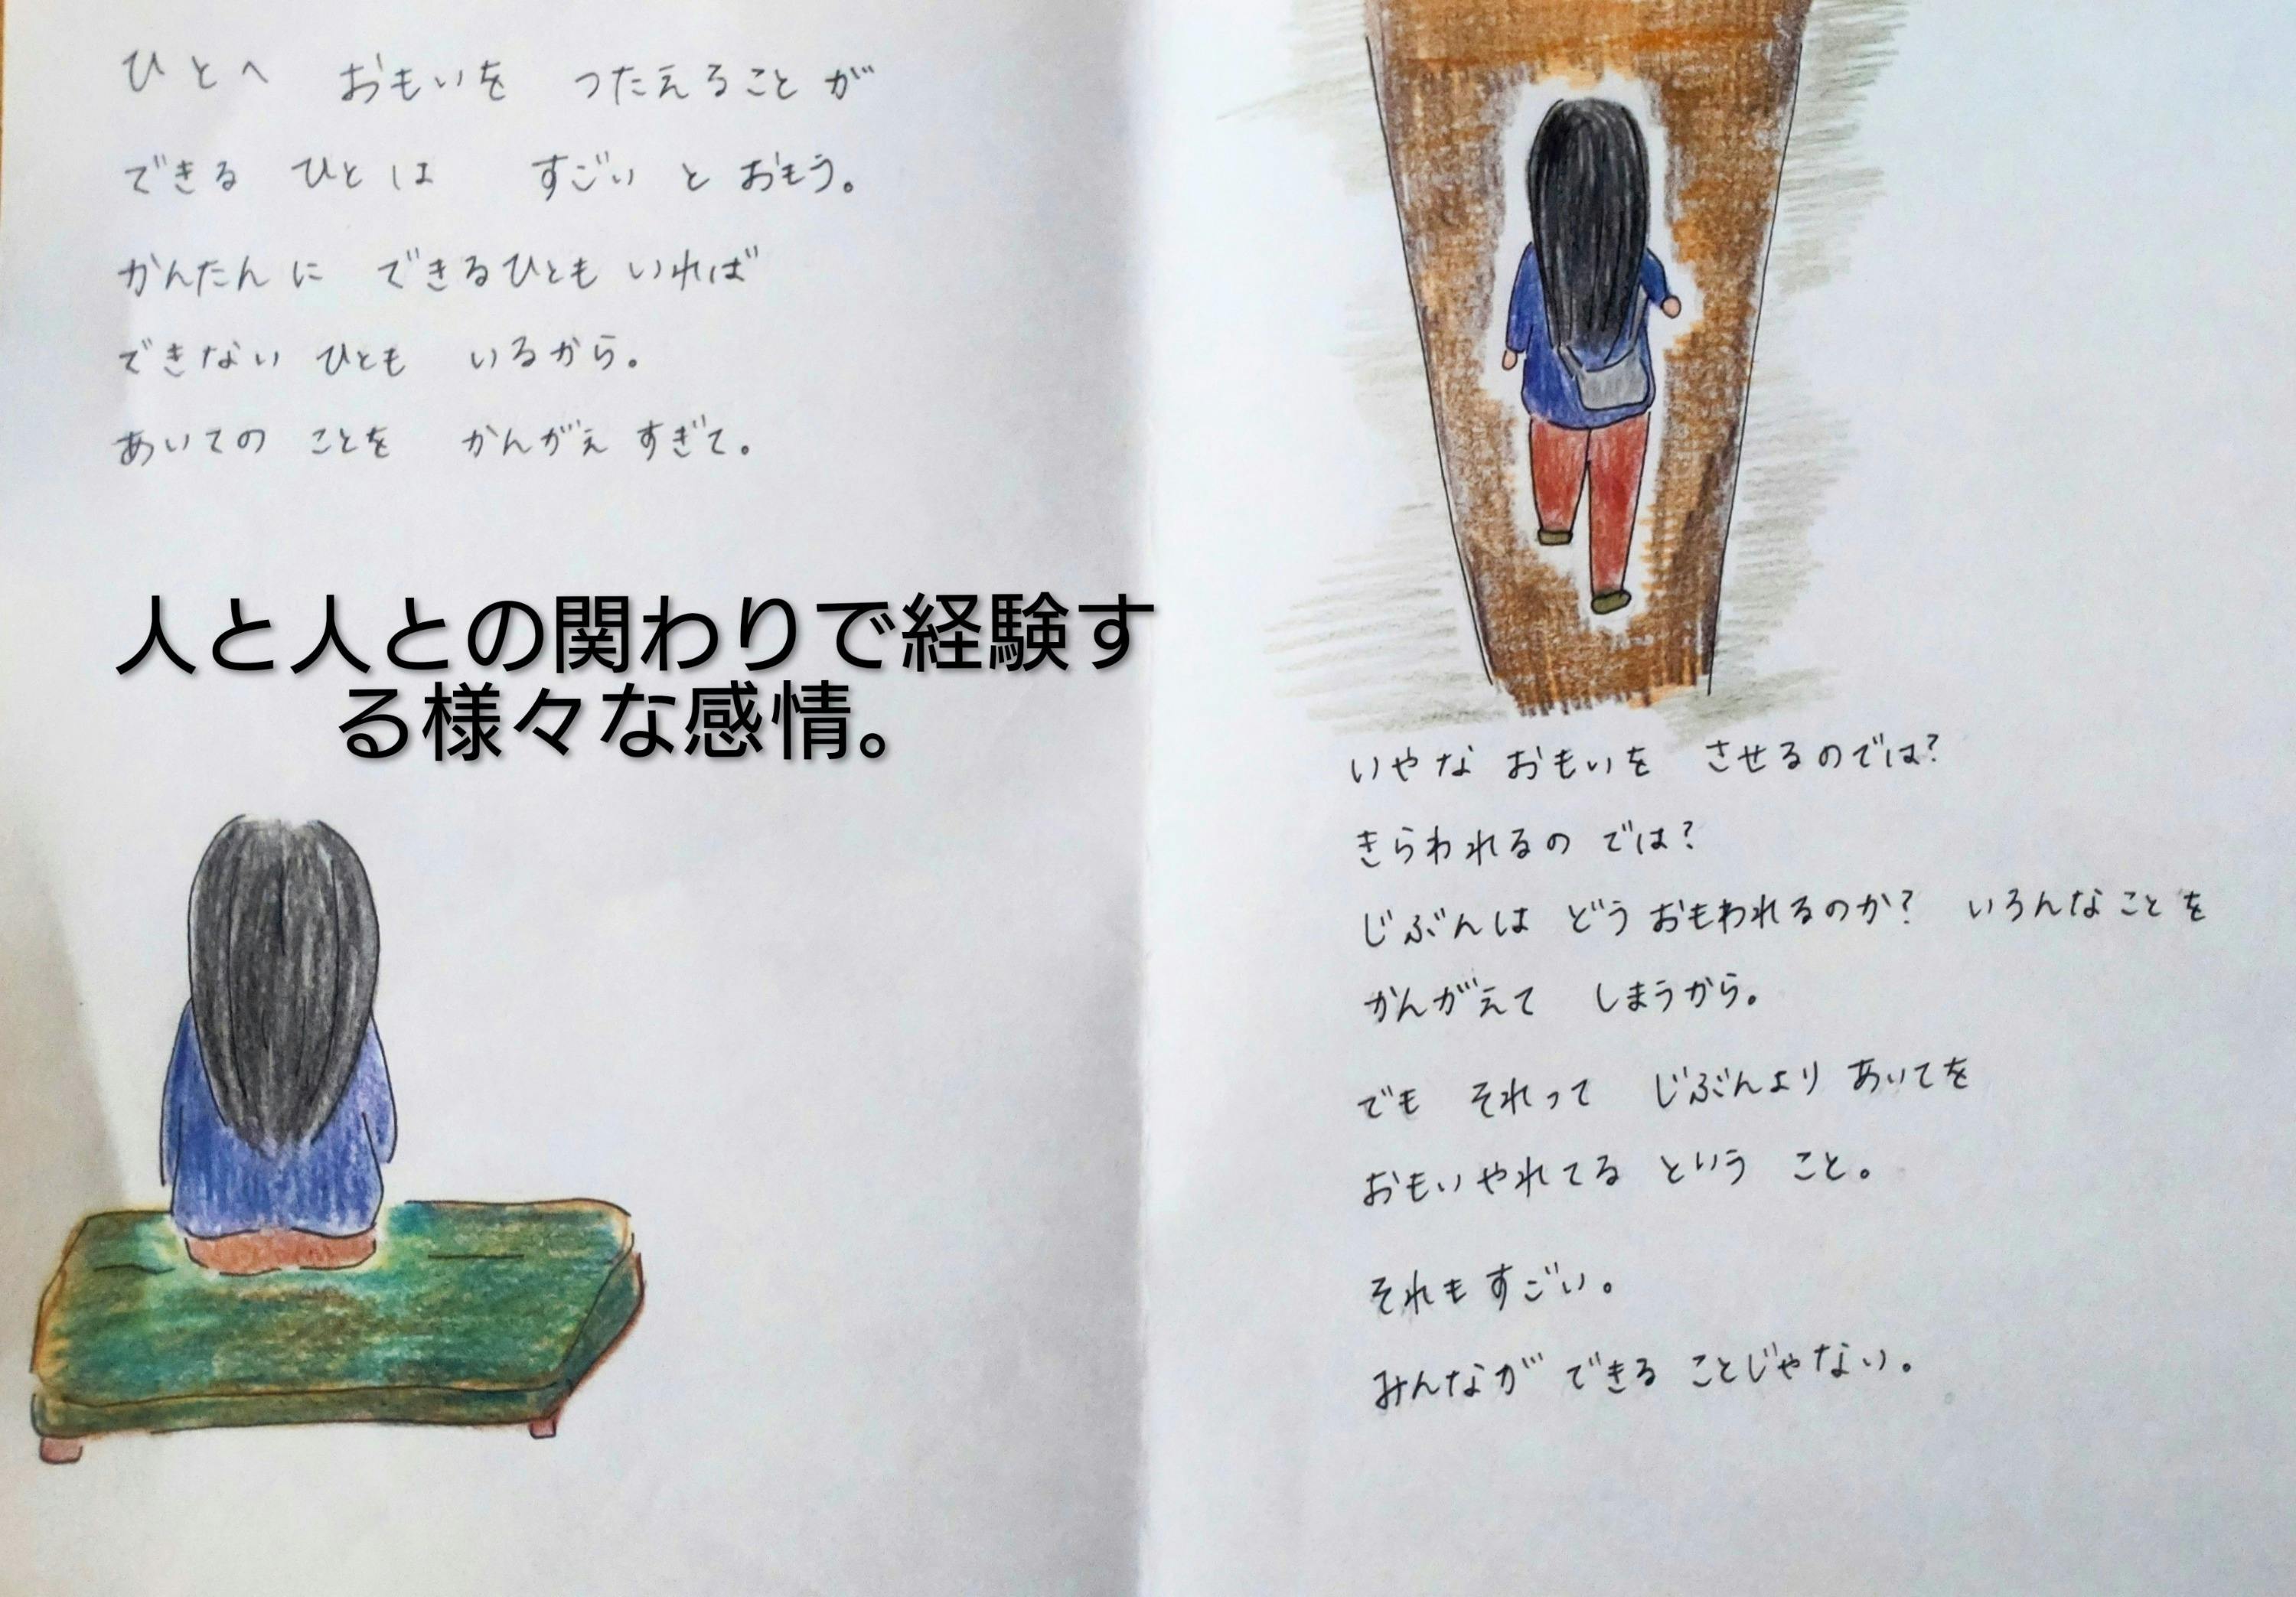 ひとへ おもいを つたえることが
できる ひとは すごい と おもう。
かんたんに できるひとも いれば
できない ひとも いるから。
あいての ことを かんがえ すぎて。
人と人との関わりで経験す
る様々な感情。
いやな おもいを させるのでは?
きらわれるの では?
じぶんは どう おもわれるのか? いろんなことを
かんがえて しまうから。
でも それって じぶんより あいてを
おもいやれてる という こと。
それもすごい。
みんなが できる ことじゃない。